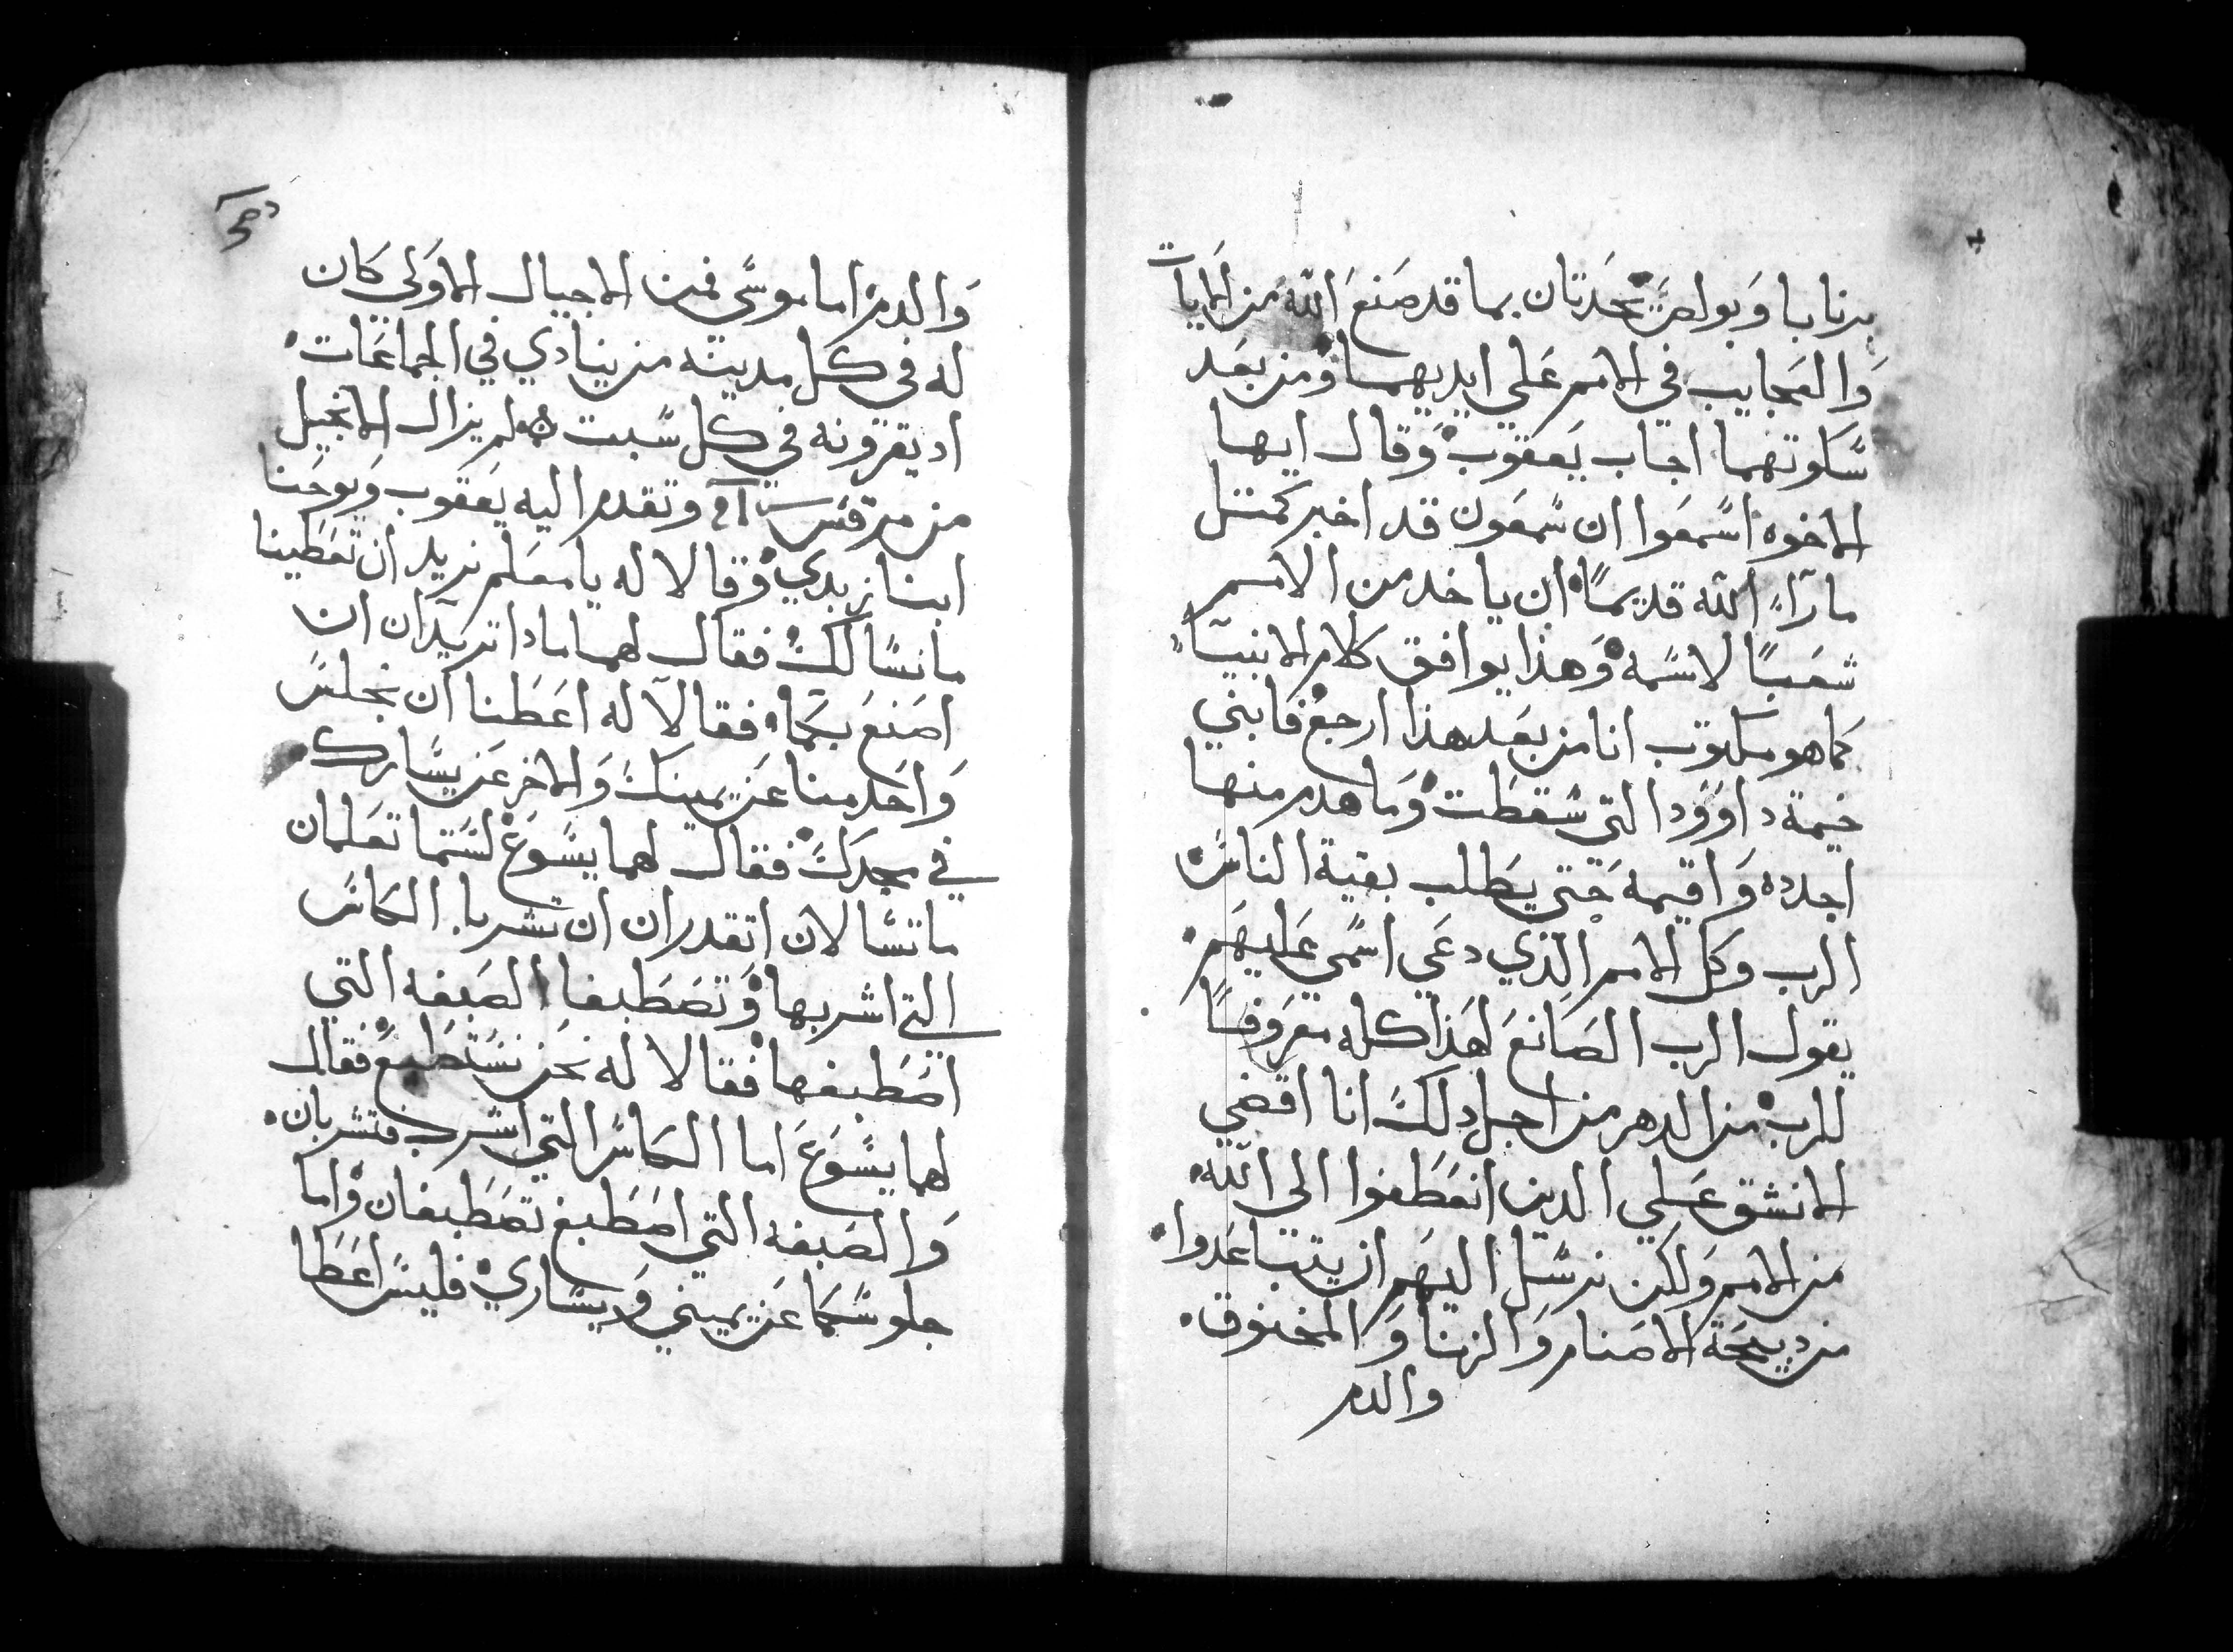 برنابا وَبولصَ يتحَدتان بما قد صَنعَ اللّه من الايات
وَالعجايب في الامم عَلي ايديهما وَمن بعَد
سَّكوتهما اجاب يَعقوب وَقال ايها
الاخوه اسَّمعَوا ان سَّمعَون قد اخبر كمتل
ما رَآء اللّه قديمًا ان ياخد من الامم
شعَبًا لاسَّمه وَهذا يوافق كلام الانبيآء
كما هو مكتوب انا من بعَد هذا ارجعُ فابني
خيمة داوَود التي سَّقطَت وَما هدم منها
اجدده وَاقيمه حَتي يطَلب بقية الناسَّ
الرب وكل الامم الذي دعَي اسَّمي عَليهَم
يقول الرب الصَانعَ لهَذا كله معَروفًا
للرب من الدهر من اجل دلكَ انا اقضي
الانشق عَلي الدين انعَطَفوا الى اللّه
من الامم وَلكن نرسَّل اليهَم ان يتباعَدوا
من دبيحَة الاصَنام وَالزنا وَالمخنوق
والدم
وَالدم اما موسَّي فمن الاجيال الاوَلي كَان
له في كل مدينه من ينادي في الجماعَات
اد يقرونه في كل سَّبت لم يزال الانجيل
من مرقسَّ وتقدم اليه يَعَقوب وَيوحَنا
ابنا زبدي وَقالا له يا معَلم نريد ان تعَطَينا
ما نسَّالكَ فقال لهما مادا تريدَان ان
اصَنعَ بكَما فقالآ له اعَطَنا ان نجلسَّ
وَاحَد منا عَن يمينكَ وَالاخر عَن يسَّارك
في مجدكَ فقال لهما يسَّوعَ لسَّتما تعَلمان
ما تسَّالان اتقدران ان تشربا الكاسَّ
التي اشربها وَتصَطَبغا الصَبغه التي
اصَطَبغها فقالا له نحَن نسَّتطَيعَ فقال
لهما يسَّوعَ اما الكاسَّ التي اشرب فتشربان
وَالصَبغه التي اصَطَبغ تصَطَبغان وَاما
جلوسَّكما عَن يميني وَيسَّاري فليسَّ اعَطَا